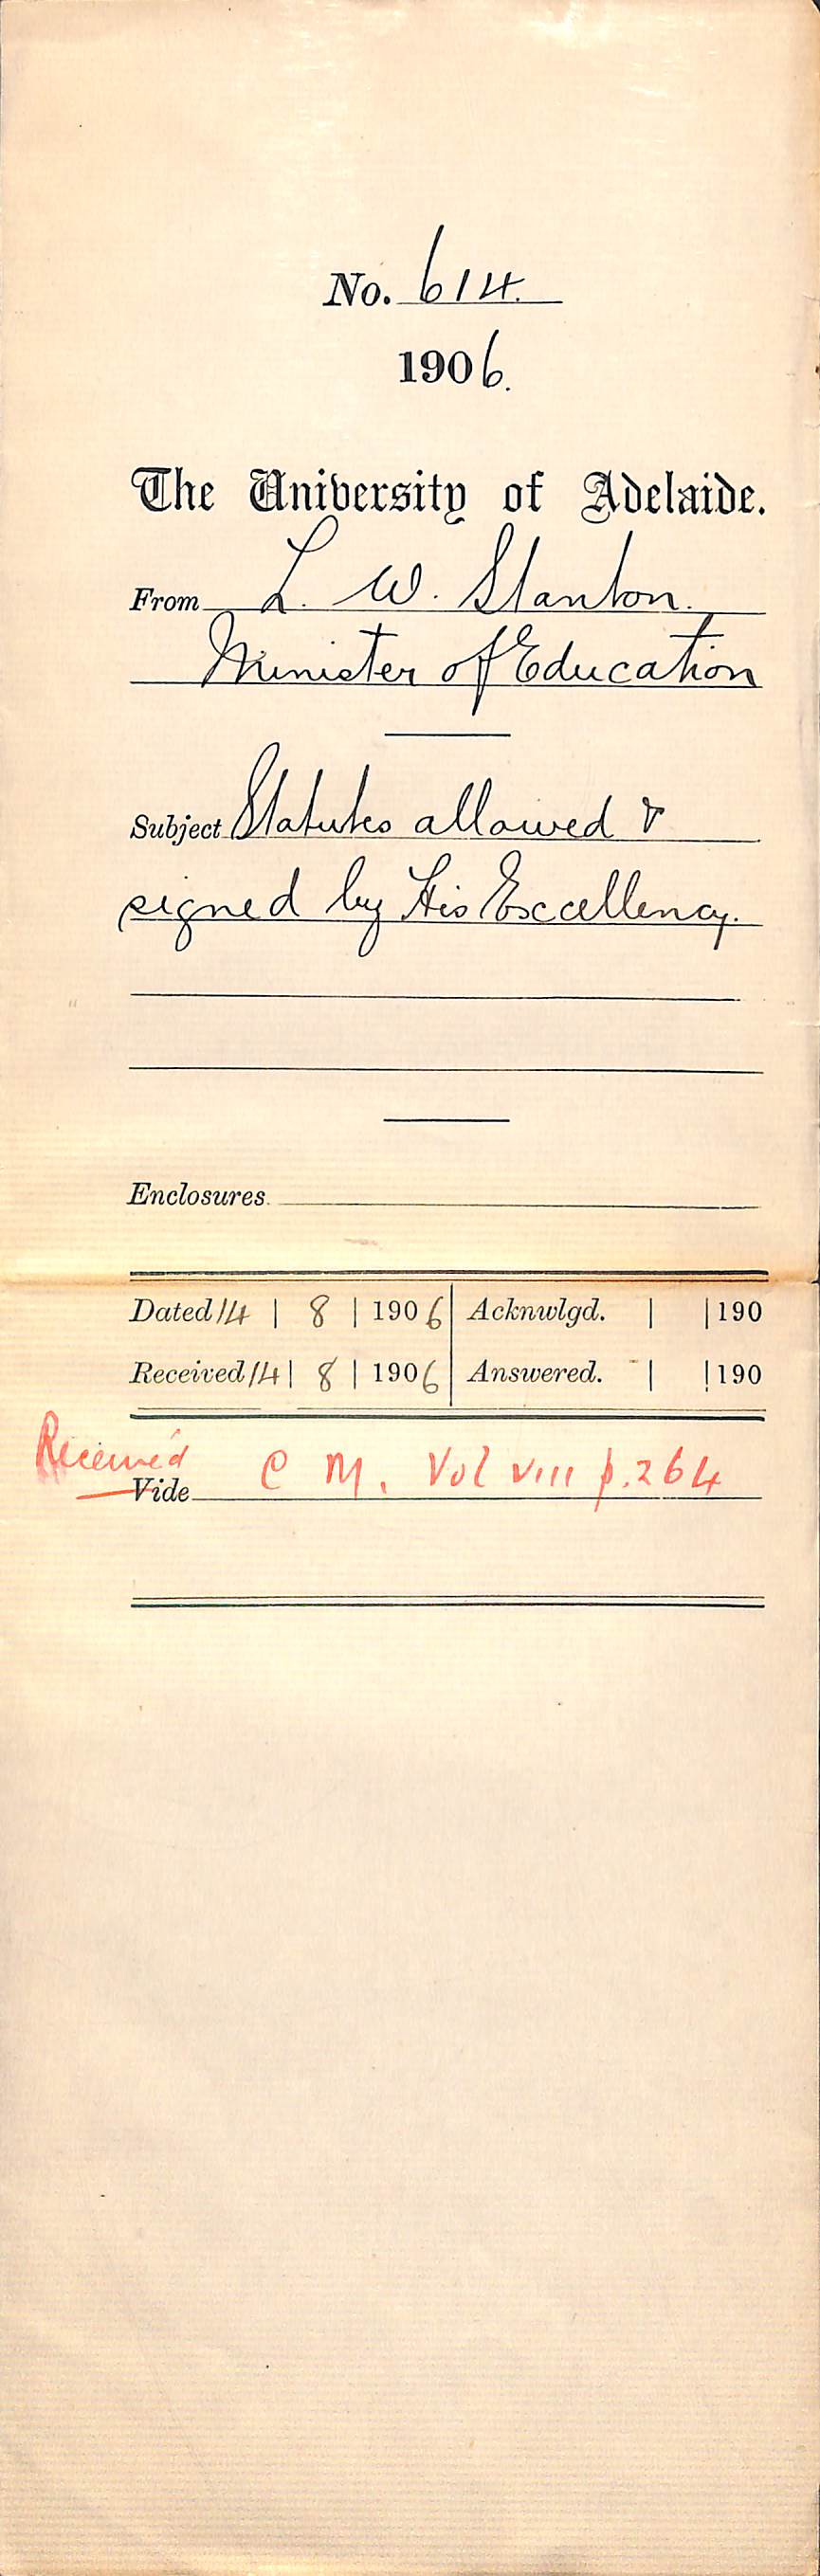 No. 614.
1906.
The University of Adelaide.
From L. W. Stanton.
Minister of Education
Subject Statutes allowed &
signed by His Excellency.
Enclosures
Dated 14 | 8 | 1906 Acknwlgd. | | 190
Received 14 | 8 | 1906 Answered. | | 190
Received
Vide C M. Vol VIII p. 264